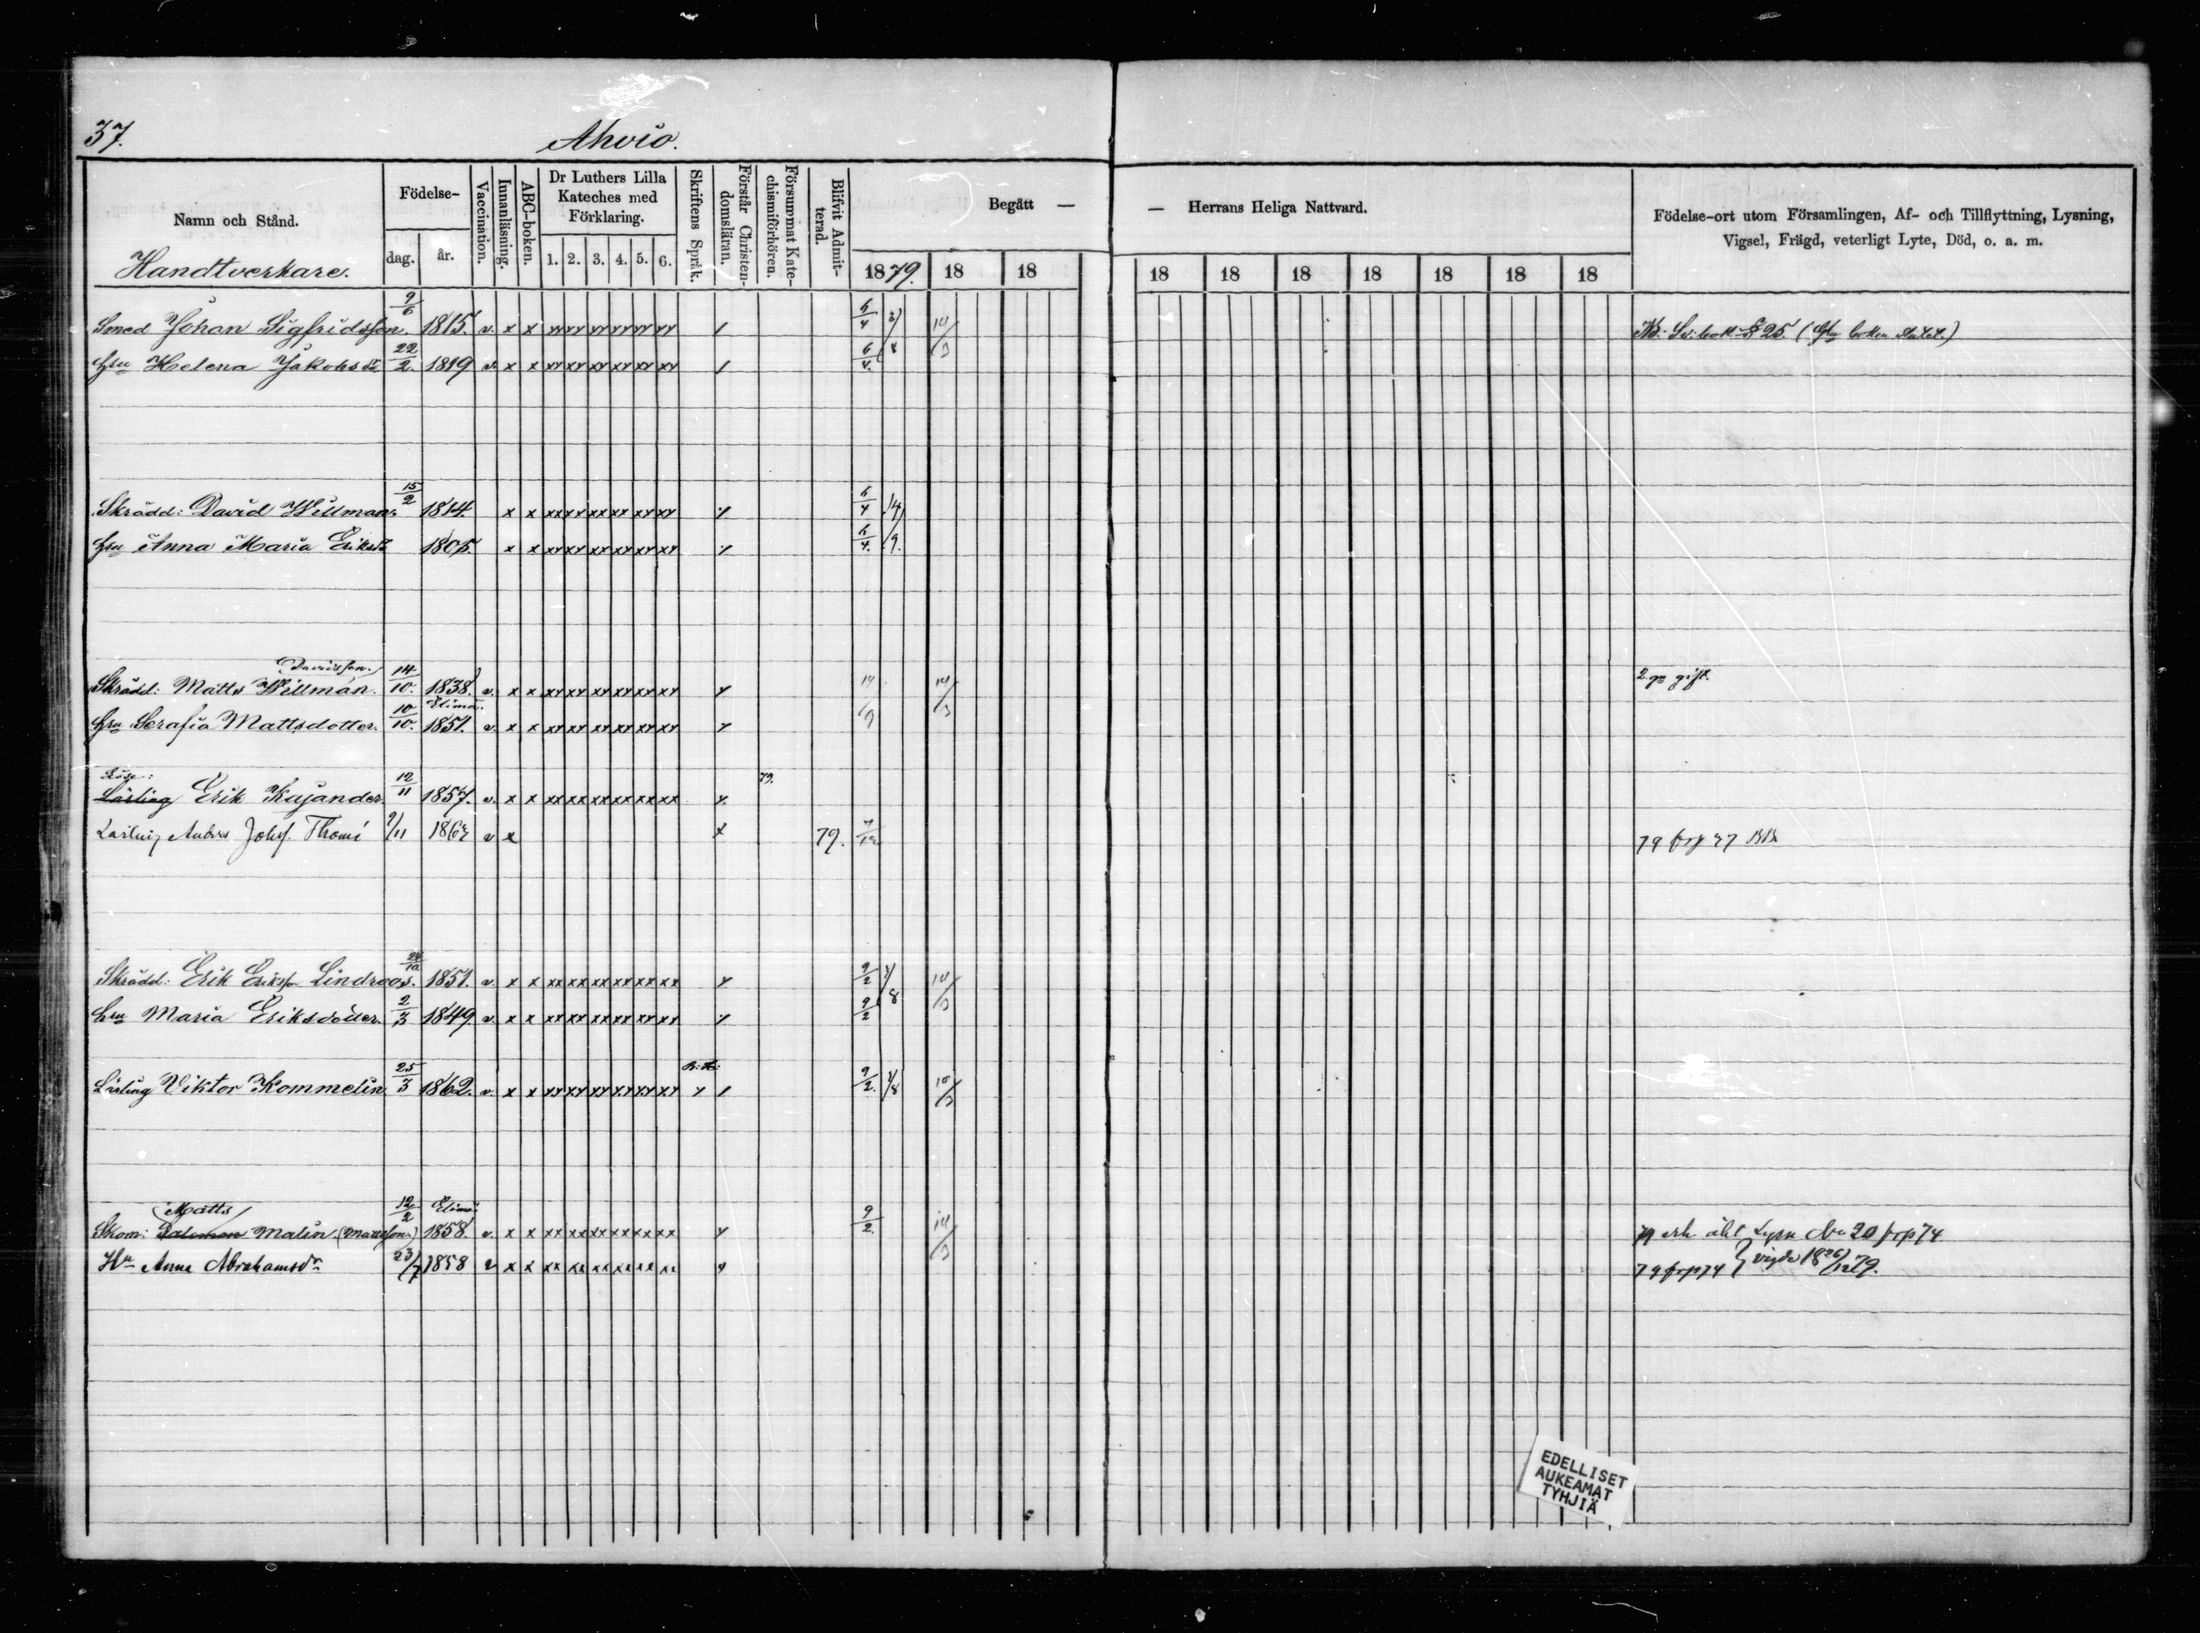 37.
Ahvio.
Namn och Stånd.
Födelse-
dag.
år.
Vaccination.
Innanläsning.
ABC-boken.
Dr Luthers Lilla
Kateches med
Förklaring.
1. 2. 3. 4. 5. 6.
Skriftens Språk.
Förstår Christen-
domsläran.
Försummat Kate-
chismiförhören.
Blifvit Admit-
terad.
Begått —
— Herrans Heliga Nattvard.
1879. 18 18 18 18 18 18 18 18 18
Födelse-ort utom Församlingen, Af- och Tillflyttning, Lysning,
Vigsel, Frägd, veterligt Lyte, Död, o. a. m.
Handtverkare.
Smed Johan Sigfridsson. 9/6 1815. v. x x xx xx xx xx xx xx
Hru Helena Jakobsdr 22/2. 1819 v. x x xx xx xx xx xx xx 6/4.
Skrädd: David Willman. 15/2 1814. x x xx xx xx xx xx xx
Hru Anna Maria Eriksdr 1805. x x xx xx xx xx xx xx
Davidsson.
Skrädd: Matts Willman. 14/10. 1838. v. x x xx xx xx xx xx xx 14/9 14/3 2. ga gift.
Elimä.
Hru Serafia Mattsdotter. 10/10. 1851. v. x x xx xx xx xx xx xx
79.
Lärling Erik Kajander. 12/11 1857. v. x x xx xx xx xx xx xx
Lärling Anders Johs. Thomé 9/11 v x x 79.
Skrädd: Erik Eriksson Lindroos. 1851. v. x x xx xx xx xx xx xx 9/2
Hru Maria Eriksdotter. 2/3 1849. v. x x xx xx xx xx xx xx 9/2
Lärling Viktor Kommelin 25/3 1862. v. x x xx xx xx xx xx xx 9/2.
Matts Elimä.
Skom: Salomon Malin. (Mattsson.) 12/2 1858. v. x x xx xx xx xx xx xx 9/2. 14/3
Lysn No 20 frp 74
Hu Anna Abrahamsdr 23/7 1858 v x x xx xx xx xx xx xx 79 frp 74 vigde 18 26/12 79.
EDELLISET
AUKEAMAT
TYHJIÄ